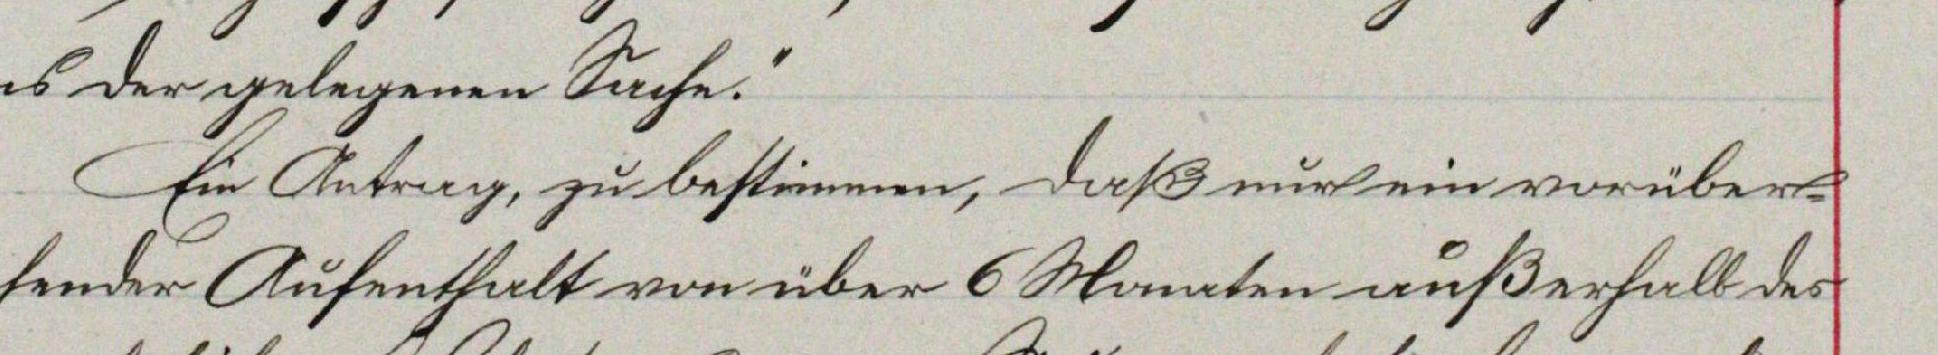 der gelegenen Sache."
Ein Antrag, zu bestimmen, daß nur ein vorüber-
hender Aufenthalt von über 6 Monaten außerhalb des